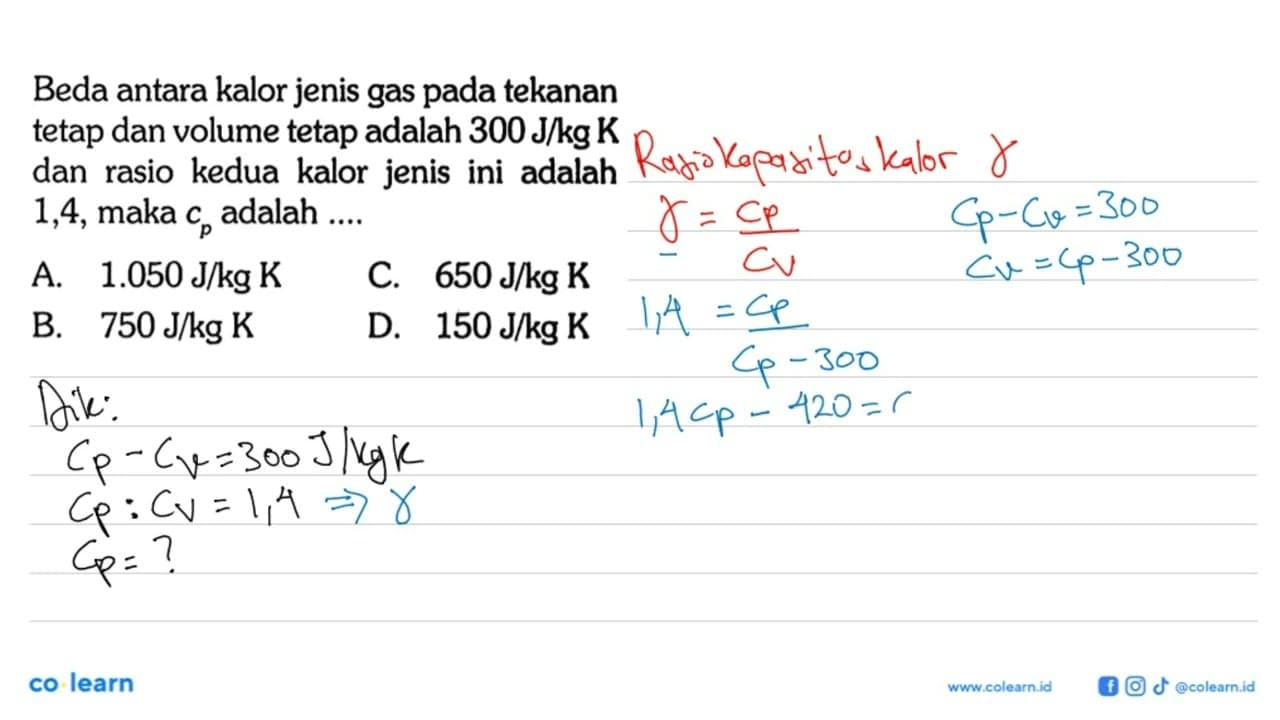 Beda antara kalor jenis gas pada tekanan
tetap dan volume tetap adalah 300 J/kg K
dan rasio kedua kalor jenis ini adalah
1,4, maka c_p adalah ....
A. 1.050 J/kg K C. 650 J/kg K
B. 750 J/kg K D. 150 J/kg K
Dik:
Cp - Cv = 300 J/kg K
Cp : Cv = 1,4 => γ
Cp = ?
Rasio Kapasitas kalor γ
γ = Cp/Cv
Cp - Cv = 300
Cv = Cp - 300
1,4 = Cp/Cp - 300
1,4 Cp - 420 =
co learn
www.colearn.id @colearn.id